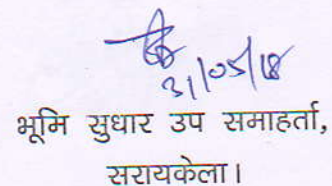 31/05/18
भूमि सुधार उप समाहर्ता,
सरायकेला।